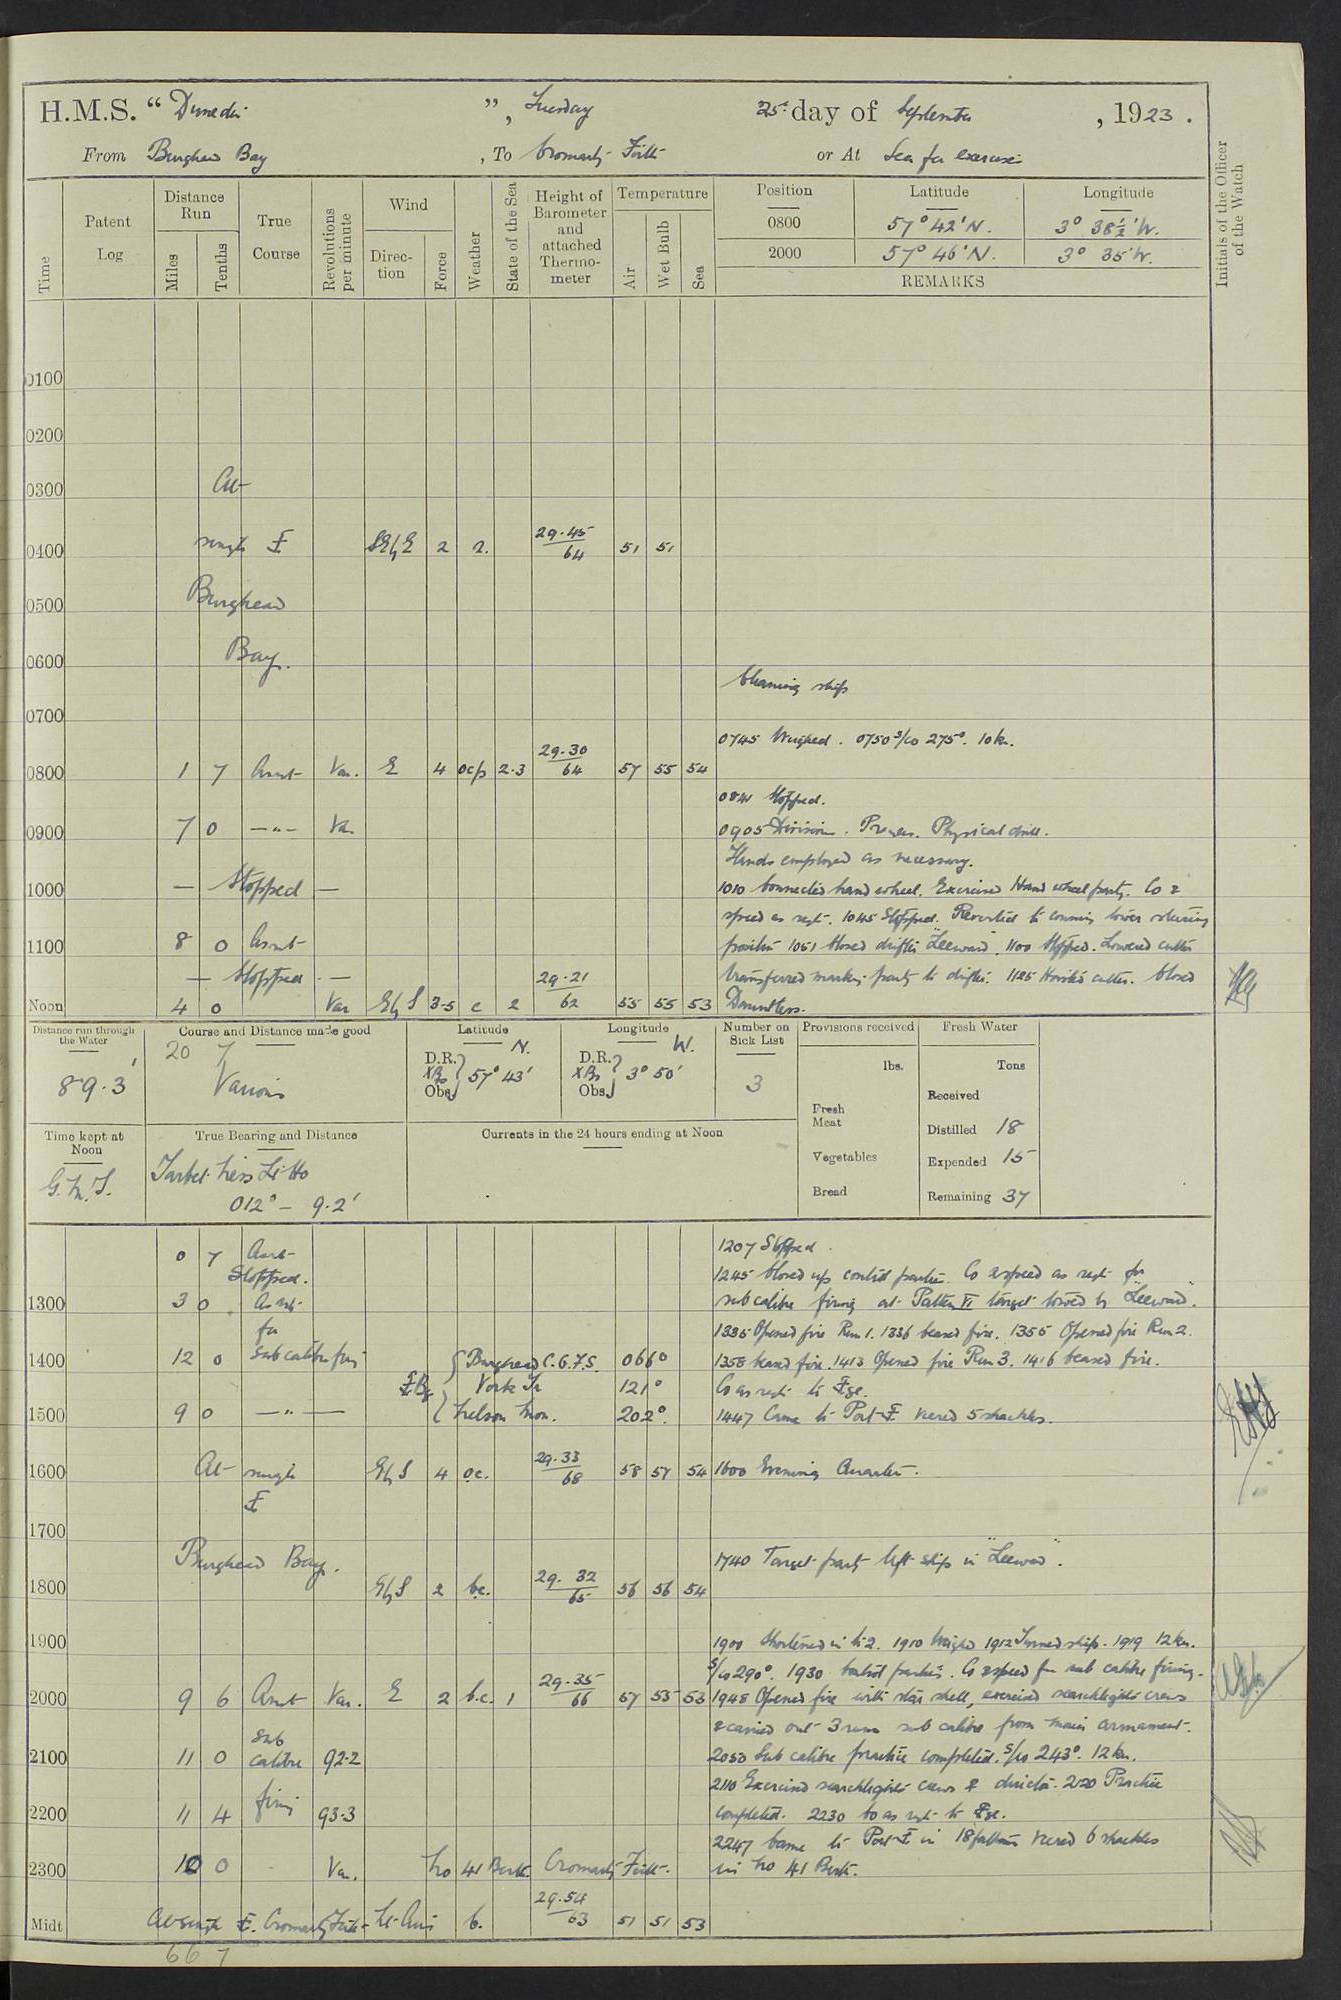 H.M.S. "Dunedin", Tuesday 25th day of September, 1923.
From Burghead Bay, To Cromarty Firth or At Sea for exercises
Initials of the Officer of the Watch
Time
Patent Log
Distance Run
Miles
Tenths
True Course
Revolutions per minute
Wind
Direction
Force
Weather
State of the Sea
Height of Barometer and attached Thermometer
Temperature
Air
Wet Bulb
Sea
Position Latitude Longitude
0800 57° 42' N. 3° 38½' W.
2000 57° 46' N. 3° 35' W.
REMARKS
0100
0200
0300 At
0400 single SEbE 2 r. 29.45/64 51 51
0500 Burghead
0600 Bay.
Cleaning ship
0700
0745 Weighed. 0750 S/Co 275°. 10 kn.
0800 1 7 As req't Var. E 4 ocp 2.3 29.30/64 57 55 54
0841 Stopped.
0900 7 0 —"— Var 0905 Divisions. Prayers. Physical drill.
Hands employed as necessary.
1000 — Stopped — 1010 Connected hand wheel. Exercised Hand wheel party. Co &
speed as reqt. 1045 Stopped. Reverted to conning tower steering
1100 8 0 As reqt position 1051 Closed drifter "Leeward". 1100 Stopped. Lowered cutter
— Stopped — 29.21 transferred marking party to drifter. 1125 Hoisted cutter. Closed
Noon 4 0 Var EbS 3-5 c 2 62 55 55 53 Dauntless.
Distance run through the Water
89.3'
Course and Distance made good
20 7
Various
Latitude N.
D.R. Obs. 57° 43'
Longitude W.
D.R. Obs. 3° 50'
Number on Sick List
3
Provisions received
lbs.
Fresh Meat
Vegetables
Bread
Fresh Water
Tons
Received
Distilled 18
Expended 15
Remaining 37
Time kept at Noon
G.M.T.
True Bearing and Distance
Tarbet Ness Lt Ho
012° – 9.2'
Currents in the 24 hours ending at Noon
0 7 As reqt 1207 Stopped.
Stopped. 1245 Closed up control parties. Co & speed as reqt for
1300 3 0 As reqt sub calibre firing at Pattern VI target towed by "Leeward".
for 1335 Opened fire Run 1. 1336 ceased fire. 1355 Opened fire Run 2.
1400 12 0 Sub calibre firing Burghead C.G.F.S. 066° 1358 ceased fire. 1413 Opened fire Run 3. 1416 ceased fire.
York Tr 121° Co as reqt to
1500 9 0 —"— Nelson Mon. 202° 1447 Came to Port veered 5 shackles.
1600 At single EbS 4 oc. 29.33/68 58 57 54 1600 Evening Quarters.
1700
Burghead Bay. 1740 Target party left ship in "Leeward".
1800 EbS 2 bc. 29.32/65 56 56 54
1900 1900 Shortened in to 2. 1910 Weighed 1912 Turned ship. 1919 12 kn.
S/Co 290°. 1930 Control parties. Co & speed for sub calibre firing.
2000 9 6 As reqt Var. E 2 b.c. 1 29.35/66 57 55 53 1948 Opened fire with star shell, exercised searchlight crews
sub & carried out 3 runs sub calibre from main armament.
2100 11 0 calibre 92.2 2053 Sub calibre practice completed. S/Co 243°. 12 kn.
firing 2110 Exercised searchlight crews & director. 2120 Practice
2200 11 4 93.3 completed. 2230 Co as reqt to
2247 Came to Port in 18 fathoms veered 6 shackles
2300 10 0 Var. No 41 Berth. Cromarty Firth. in No 41 Berth.
Midt At single Cromarty Firth Lt Airs b. 29.54/63 51 51 53
66 7